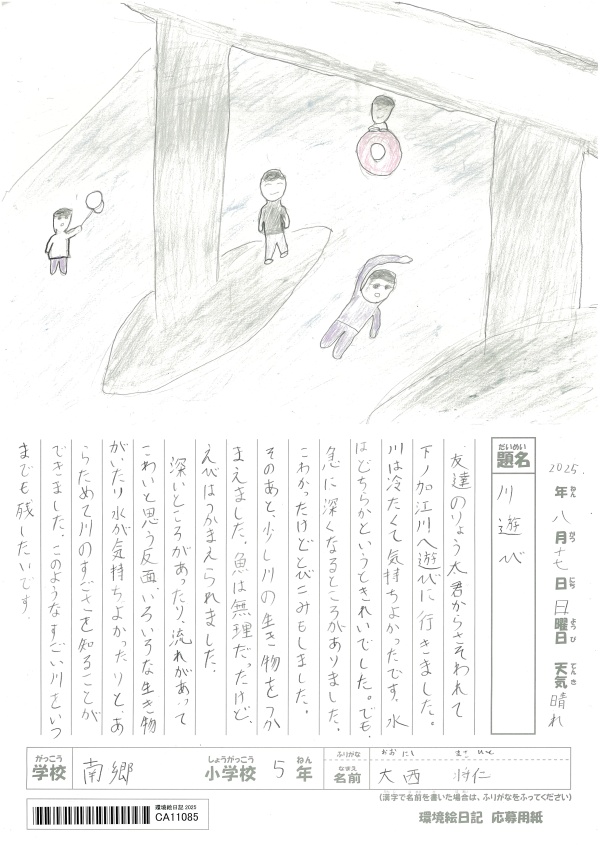 2025.年八月十七日日曜日 天気 晴れ
ねん がつ にち ようび てんき
だいめい
題名
川遊び
友達のりょう太君からさそわれて
下ノ加江川へ遊びに行きました。
川は冷たくて気持ちよかったです。水
はどちらかというときれいでした。でも、
急に深くなるところがありました。
こわかったけどとびこみもしました。
そのあと、少し川の生き物をつか
まえました。魚は無理だったけど、
えびはつかまえられました。
深いところがあったり、流れがあって
こわいと思う反面、いろいろな生き物
がいたり水が気持ちよかったりと、あ
らためて川のすごさを知ることが
できました。このようなすごい川をいつ
までも残したいです。
がっこう しょうがっこう ねん
学校 南郷 小学校 5年
ふりがな おおにし まさひと
なまえ
名前 大西 将仁
(漢字で名前を書いた場合は、ふりがなをふってください)
環境絵日記 2025
CA11085
環境絵日記 応募用紙